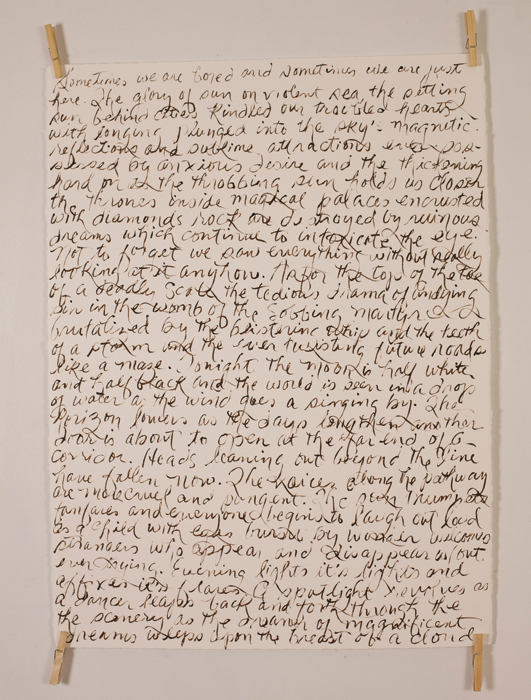 Sometimes we are bored and sometimes we are just
here. The glory of sun on violent sea the setting
sun behind does kindled our troubled hearts
with longing plunged into the sky's magnetic
reflections and sublime attractions ever pos-
sessed by anxious desire and the thickening
hand on the throbbing sun holds us closer
the thrones inside magical palaces encrusted
with diamonds rock are destroyed by ruinous
dreams which continue to intoxicate the eye.
Not to forget we saw everything without really
looking at it anyhow. the top of the
of a the tedious drama of undying
sin in the womb of the sobbing martyr
brutalized by the blistering whip and the teeth
of a and the ever twisting future roads
like a maze. Tonight the moon is half white
and half black and the world is seen in a drop
of water as the wind goes a singing by. The
horizon lowers as the days lengthen another
door is about to open at the far end of a
corridor. Heads leaning out beyond the line
have fallen now. The voices along the pathway
are and pungent. The
fanfares and everyone begins to laugh out loud
as a child with by wonder welcomes
strangers who appear and disappear without
ever Evening lights it's lights and
affixes it's flares. A spotlight revolves as
a dancer leaps back and forth through the
the scenery as the of magnificent
dreams weeps upon the breast of a cloud